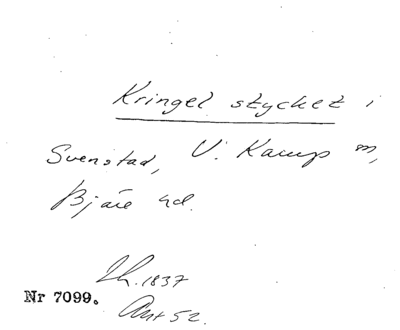 Kringel stycket i
Svenstad, V. Karup sn,
Bjäre hd.
Lh. 1837
Nr 7099.
Akt 52.